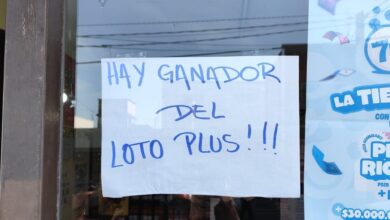 HAY GANADOR
DEL
LOTO PLUS!!!
7
LA TIE
CON
+$30.000.